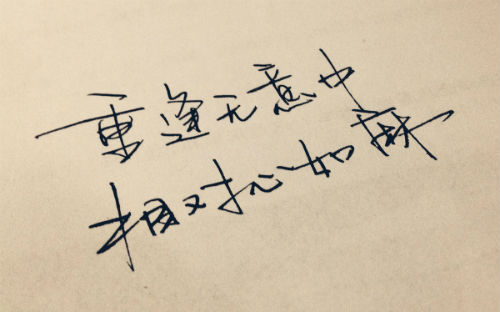 重逢无意中
相对心如麻